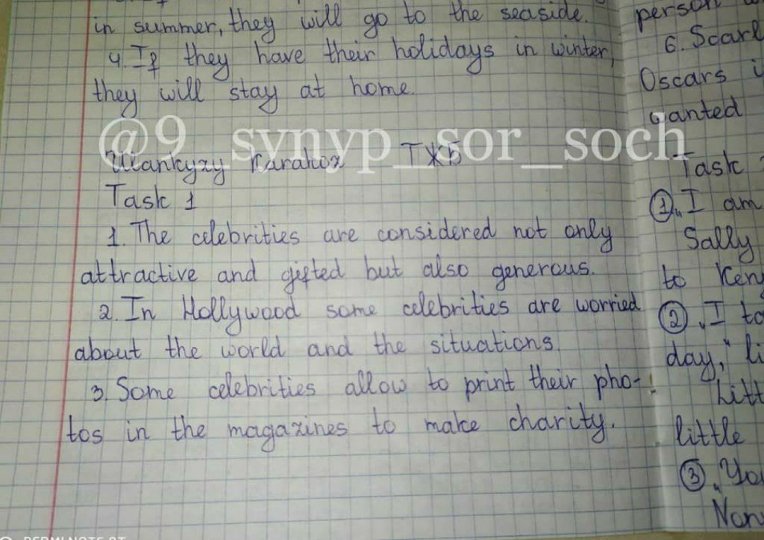 in summer, they will go to the seaside.
4. If they have their holidays in winter,
they will stay at home.
@9_synyp_sor_soch
ТЖБ
Task 1
1. The celebrities are considered not only
attractive and gifted but also generous.
2. In Hollywood some celebrities are worried
about the world and the situations.
3. Some celebrities allow to print their pho-
tos in the magazines to make charity.
person
6. Scarl
Oscars
Task
①. I am
Sally
to Ken
②. I to
day," li
little
③. You
Non